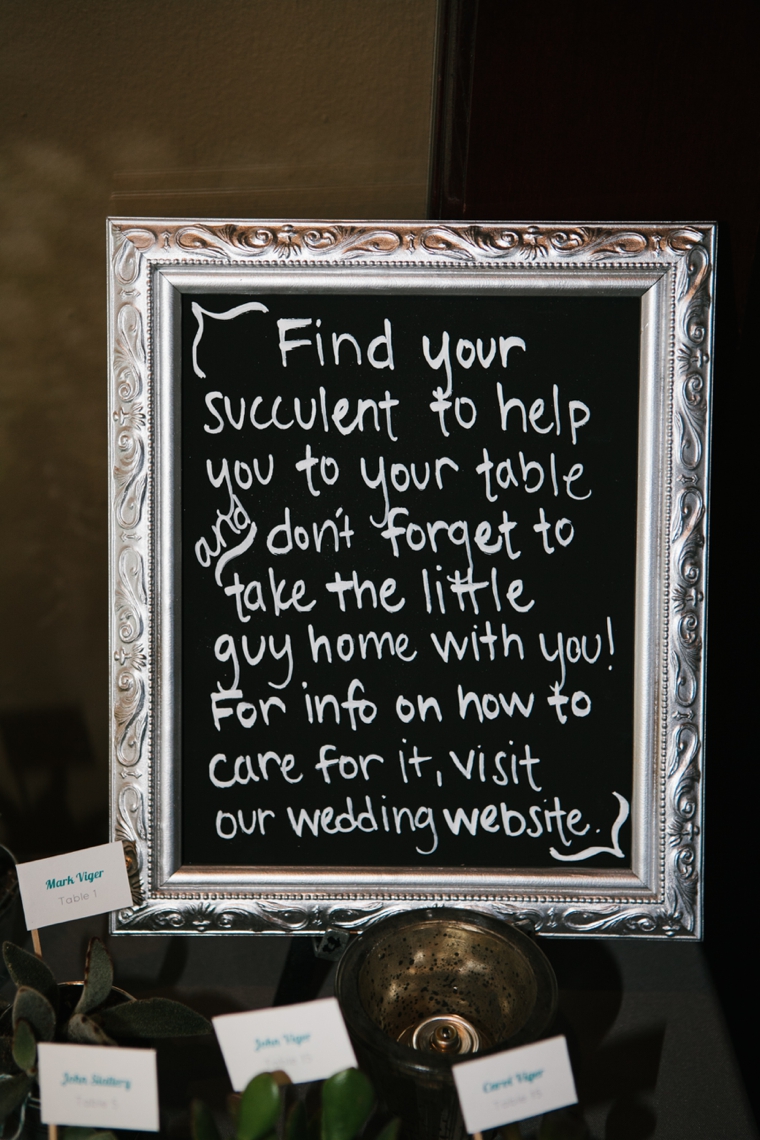 Find your
succulent to help
you to your table
and don't forget to
take the little
guy home with you!
For info on how to
care for it, visit
our wedding website.
Mark Viger
Table 1
John Viger
Table
John Slattery
Table 5
Carol Viger
Table